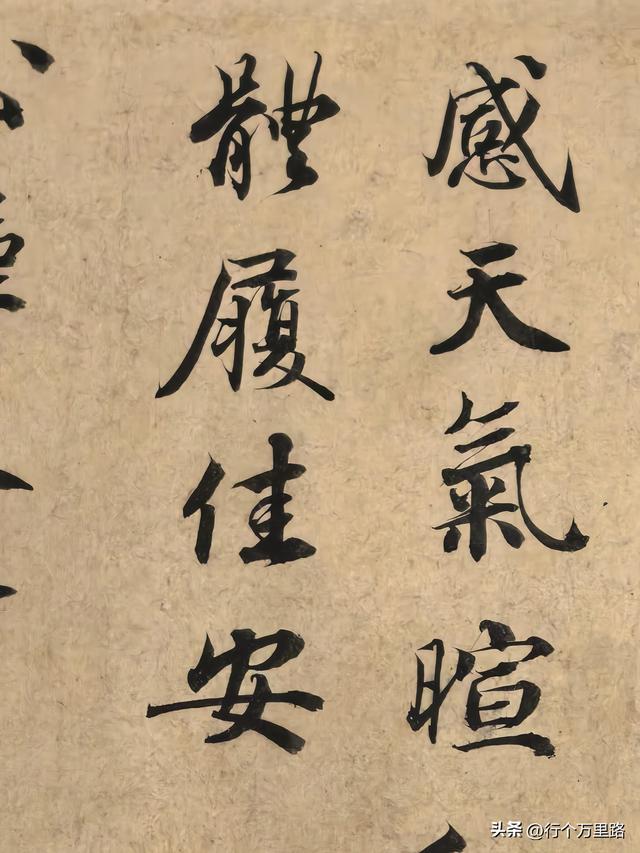 感天氣暄
體履佳安
头条 @行个万里路